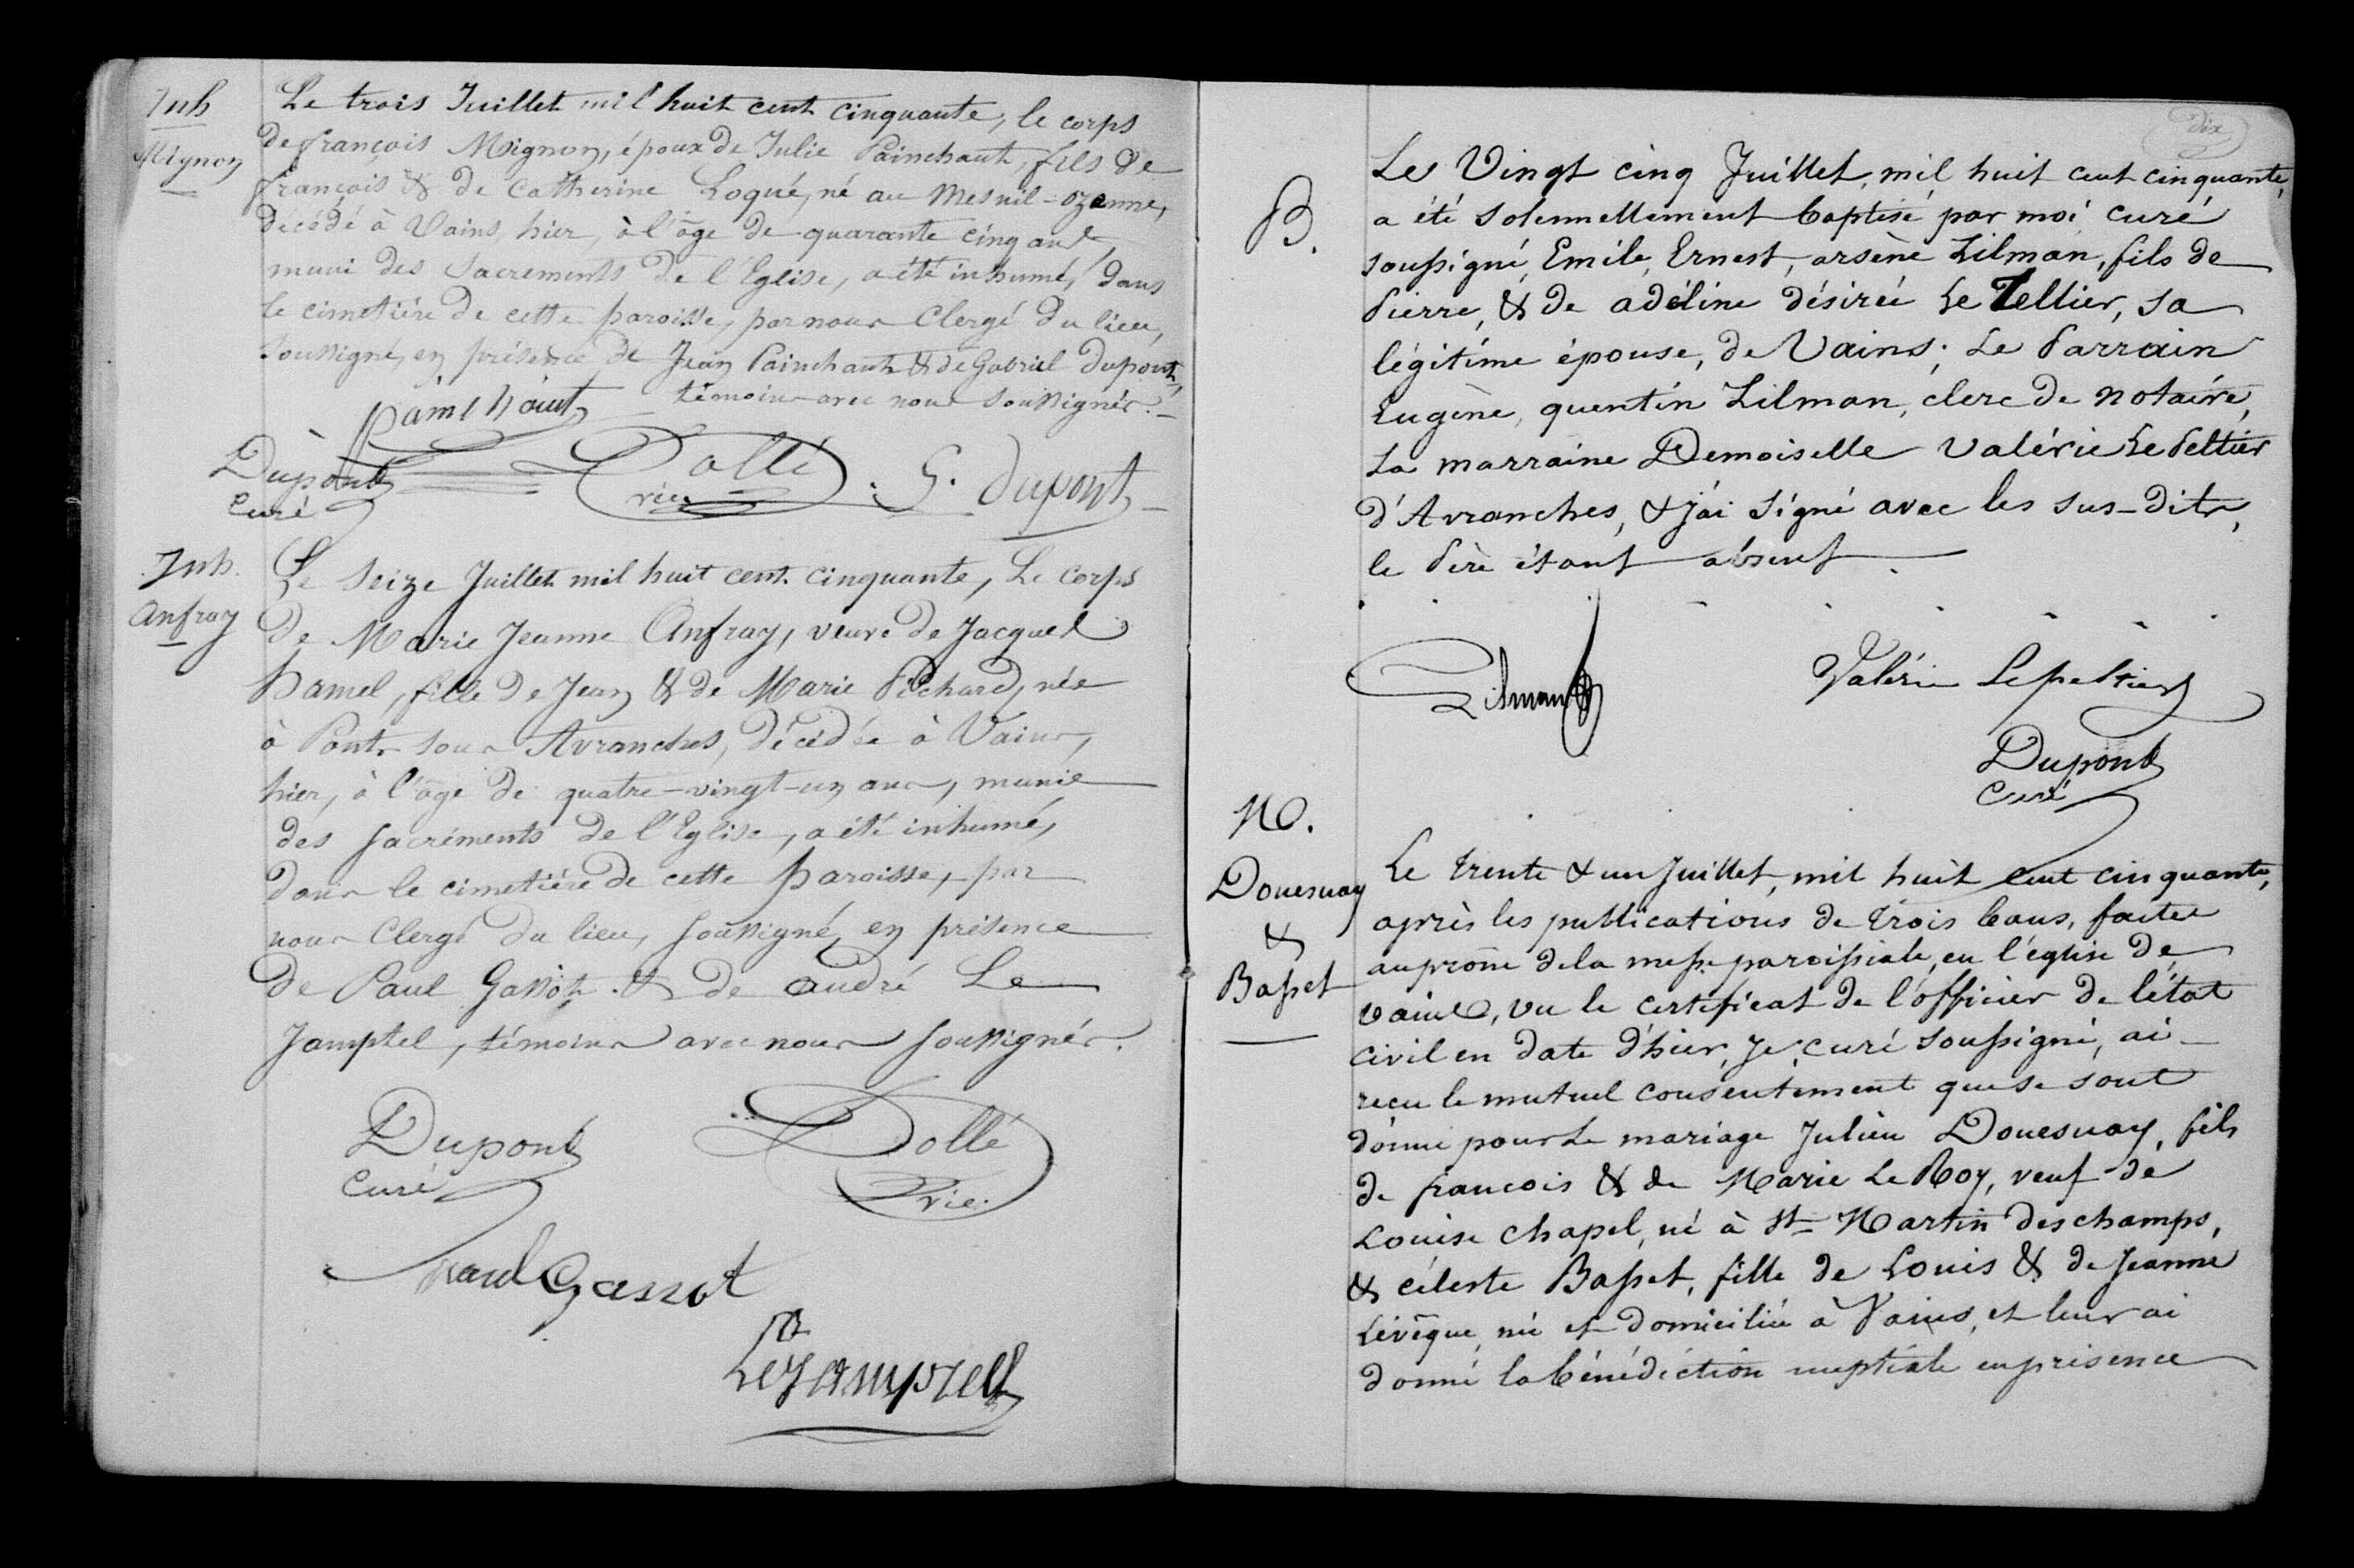 Inh
Mignon
Le trois Juillet mil huit cent cinquante, le corps
de françois Mignon, époux de Julie Painchaut, fils de
françois & de Catherine Loqué, né au Mesnil-ozenne,
décédé à Vains, hier, à l'âge de quarante cinq ans,
muni des Sacrements de l'Eglise, a été inhumé, dans
le cimetière de cette paroisse, par nous Clergé du lieu,
soussigné, en présence de Jean Painchaut & de Gabriel Dupont,
témoins avec nous soussignés.
Painchaut
Dupont
curé
Dollé
vic.
G. Dupont
Inh.
Anfray
Le Seize Juillet mil huit cent cinquante, Le corps
de Marie Jeanne Anfray, veuve de Jacques
hamel, fille de Jean & de Marie Pichard, née
à Ponts sous Avranches, décédée à Vains,
hier, à l'âge de quatre-vingt-un ans, munie
des Sacréments de l'Eglise, a été inhumé,
dans le cimetière de cette paroisse, par
nous Clergé du lieu, soussigné, en présence
de Paul Gassot & de andré Le
Jamptel, témoins avec nous soussignés.
Dupont
Curé
Dollé
vic.
Paul Gassot
LeJamptel
dix
B.
Le Vingt cinq Juillet, mil huit cent cinquante,
a été solennellement baptisé par moi curé
soussigné, Emile, Ernest, arsène Lilman, fils de
Pierre, & de adéline désirée Le Tellier, sa
légitime épouse, de Vains; Le Parrain
Eugène, quentin Lilman, clerc de notaire,
La marraine Demoiselle Valérie Le Peltier
d'Avranches, & j'ai signé avec les sus-dits,
le Père étant absent.
Lilman
Valérie Lepeltier
Dupont
Curé
M.
Douesnay
&
Basset
Le trente & un Juillet, mil huit cent cinquante,
après les publications de trois bans, faites
au prône de la messe paroissiale, en l'église de
vains, vu le certificat de l'officier de l'état
civil en date d'hier, Je, curé soussigné, ai
reçu le mutuel consentement que se sont
donné pour le mariage Julien Douesnay, fils
de francois & de Marie Le Roy, veuf de
Louise chapel, né à St Martin des champs,
& céleste Basset, fille de Louis & de Jeanne
Lévêque, née et domiciliée à Vains, et leur ai
donné la bénédiction nuptiale en présence